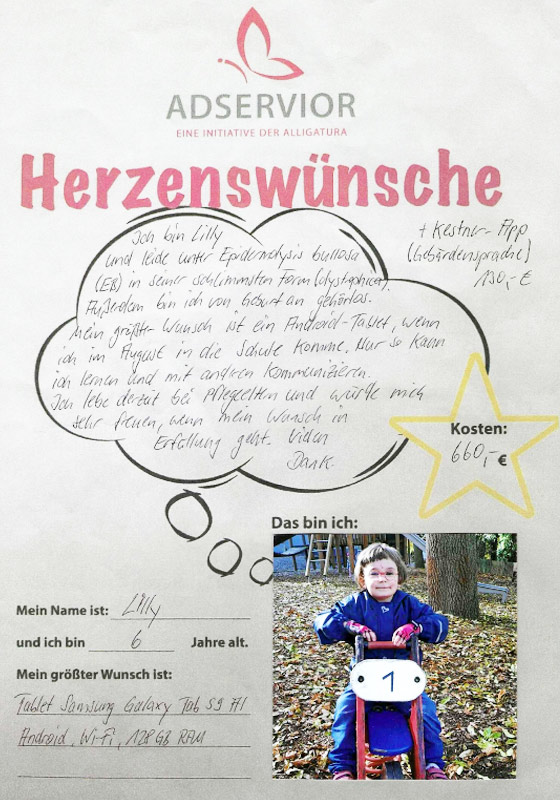 ADSERVIOR
EINE INITIATIVE DER ALLIGATURA
Herzenswünsche
+ Kestner-App
(Gebärdensprache)
130,- €
Ich bin Lilly
und leide unter Epidermolysis bullosa
(EB) in seiner schlimmsten Form (dystophica).
Außerdem bin ich von Geburt an gehörlos.
Mein größter Wunsch ist ein Android-Tablet, wenn
ich im August in die Schule komme. Nur so kann
ich lernen und mit anderen kommunizieren.
Ich lebe derzeit bei Pflegeeltern und würde mich
sehr freuen, wenn mein Wunsch in
Erfüllung geht. Vielen
Dank.
Kosten:
660,- €
Das bin ich:
1
Mein Name ist: Lilly
und ich bin 6 Jahre alt.
Mein größter Wunsch ist:
Tablet Samsung Galaxy Tab S9 711
Android, Wi-Fi, 128 GB RAM